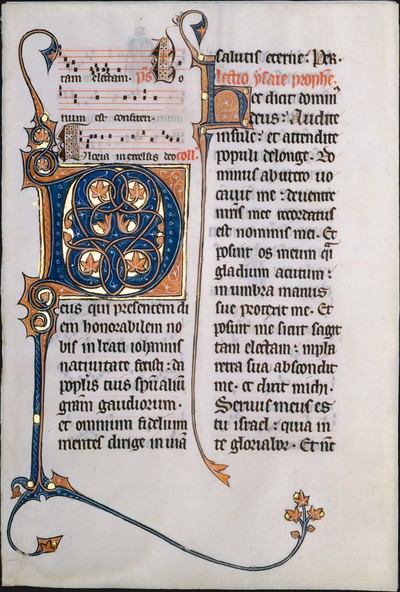 tam electam. ps Bo
num est confiteri.
Gloria in excelsis deo coll.
Deus qui presentem di
em honorabilem no
bis in beati iohannis
natiuitate fecisti: da
populis tuis
gaudiorum.
et omnium fidelium
mentes dirige in uiam
salutis eterne: Per.
lectio ysaie prophe.
Hec dicit domin
deus: Audite
insule: et attendite
populi de longe. Do
minus ab utero uo
cauit me: de uentre
mris mee recordatus
est nominis mei. Et
posuit os meum
gladium acutum:
in umbra manus
sue protexit me. Et
posuit me sicut sagit
tam electam: in
retra sua abscondit
me. et dixit michi.
Seruus meus es
tu israel: quia in
te gloriabor. Et nc